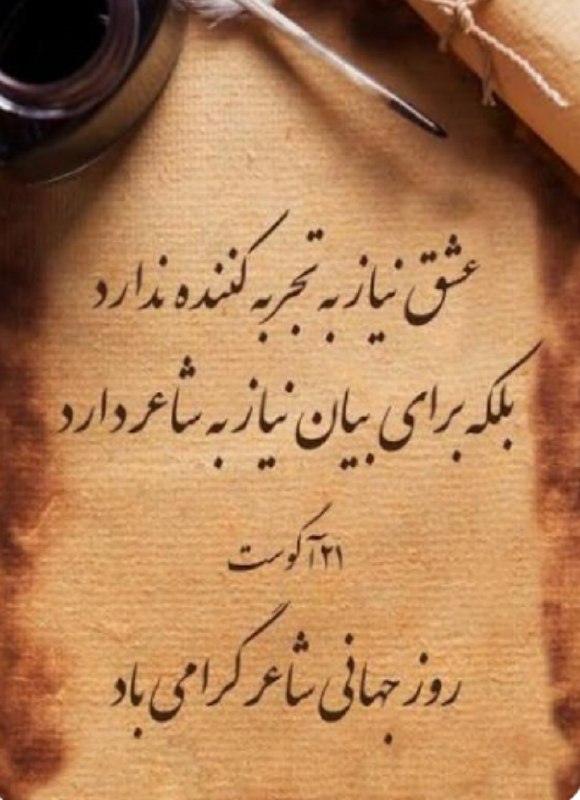 عشق نیاز به تجربه کننده ندارد
بلکه برای بیان نیاز به شاعر دارد
۲۱ آگوست
روز جهانی شاعر گرامی باد